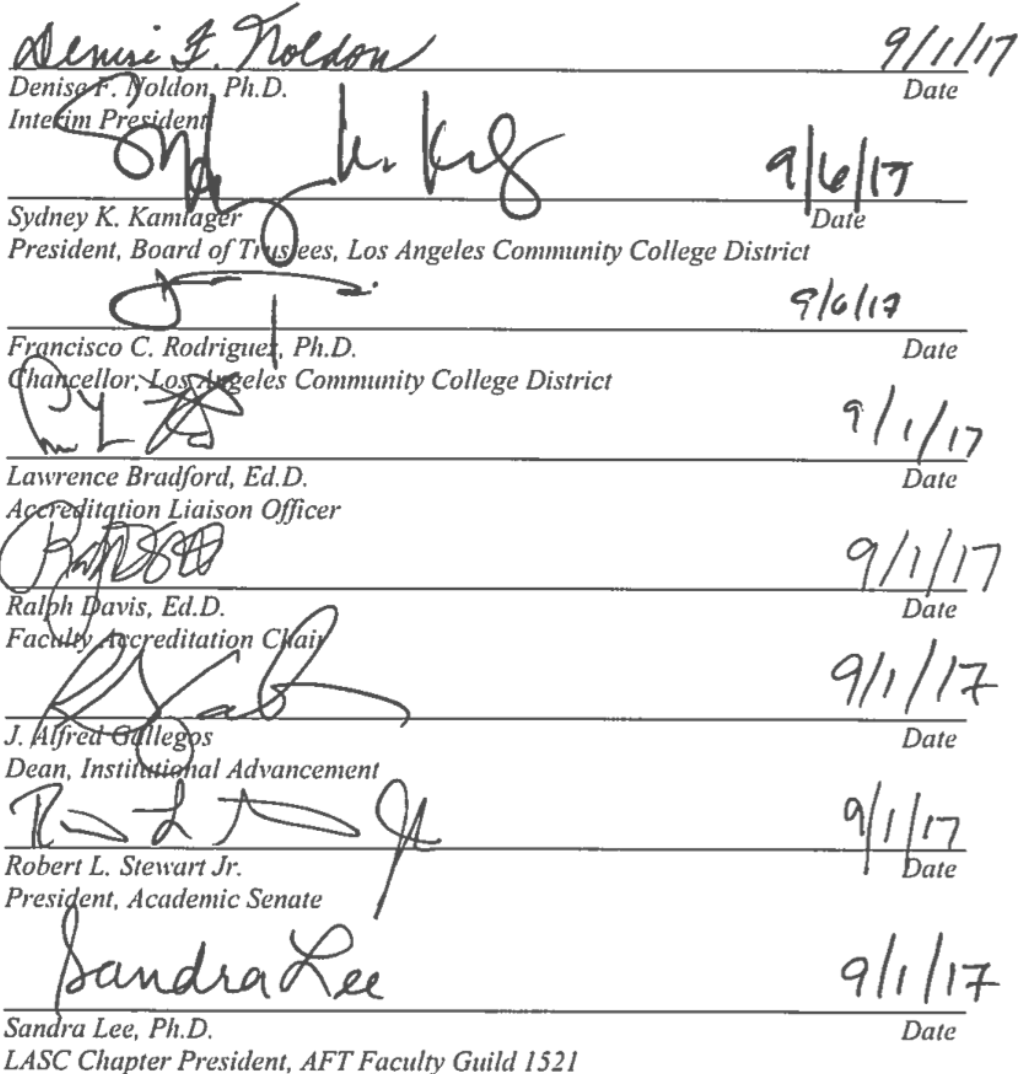 Denise F. Noldon 9/1/17
Denise F. Noldon, Ph.D. Date
Interim President
9/6/17
Sydney K. Kamlager Date
President, Board of Trustees, Los Angeles Community College District
9/6/17
Francisco C. Rodriguez, Ph.D. Date
Chancellor, Los Angeles Community College District
9/1/17
Lawrence Bradford, Ed.D. Date
Accreditation Liaison Officer
9/1/17
Ralph Davis, Ed.D. Date
Faculty Accreditation Chair
9/1/17
J. Alfred Gallegos Date
Dean, Institutional Advancement
9/1/17
Robert L. Stewart Jr. Date
President, Academic Senate
Sandra Lee 9/1/17
Sandra Lee, Ph.D. Date
LASC Chapter President, AFT Faculty Guild 1521